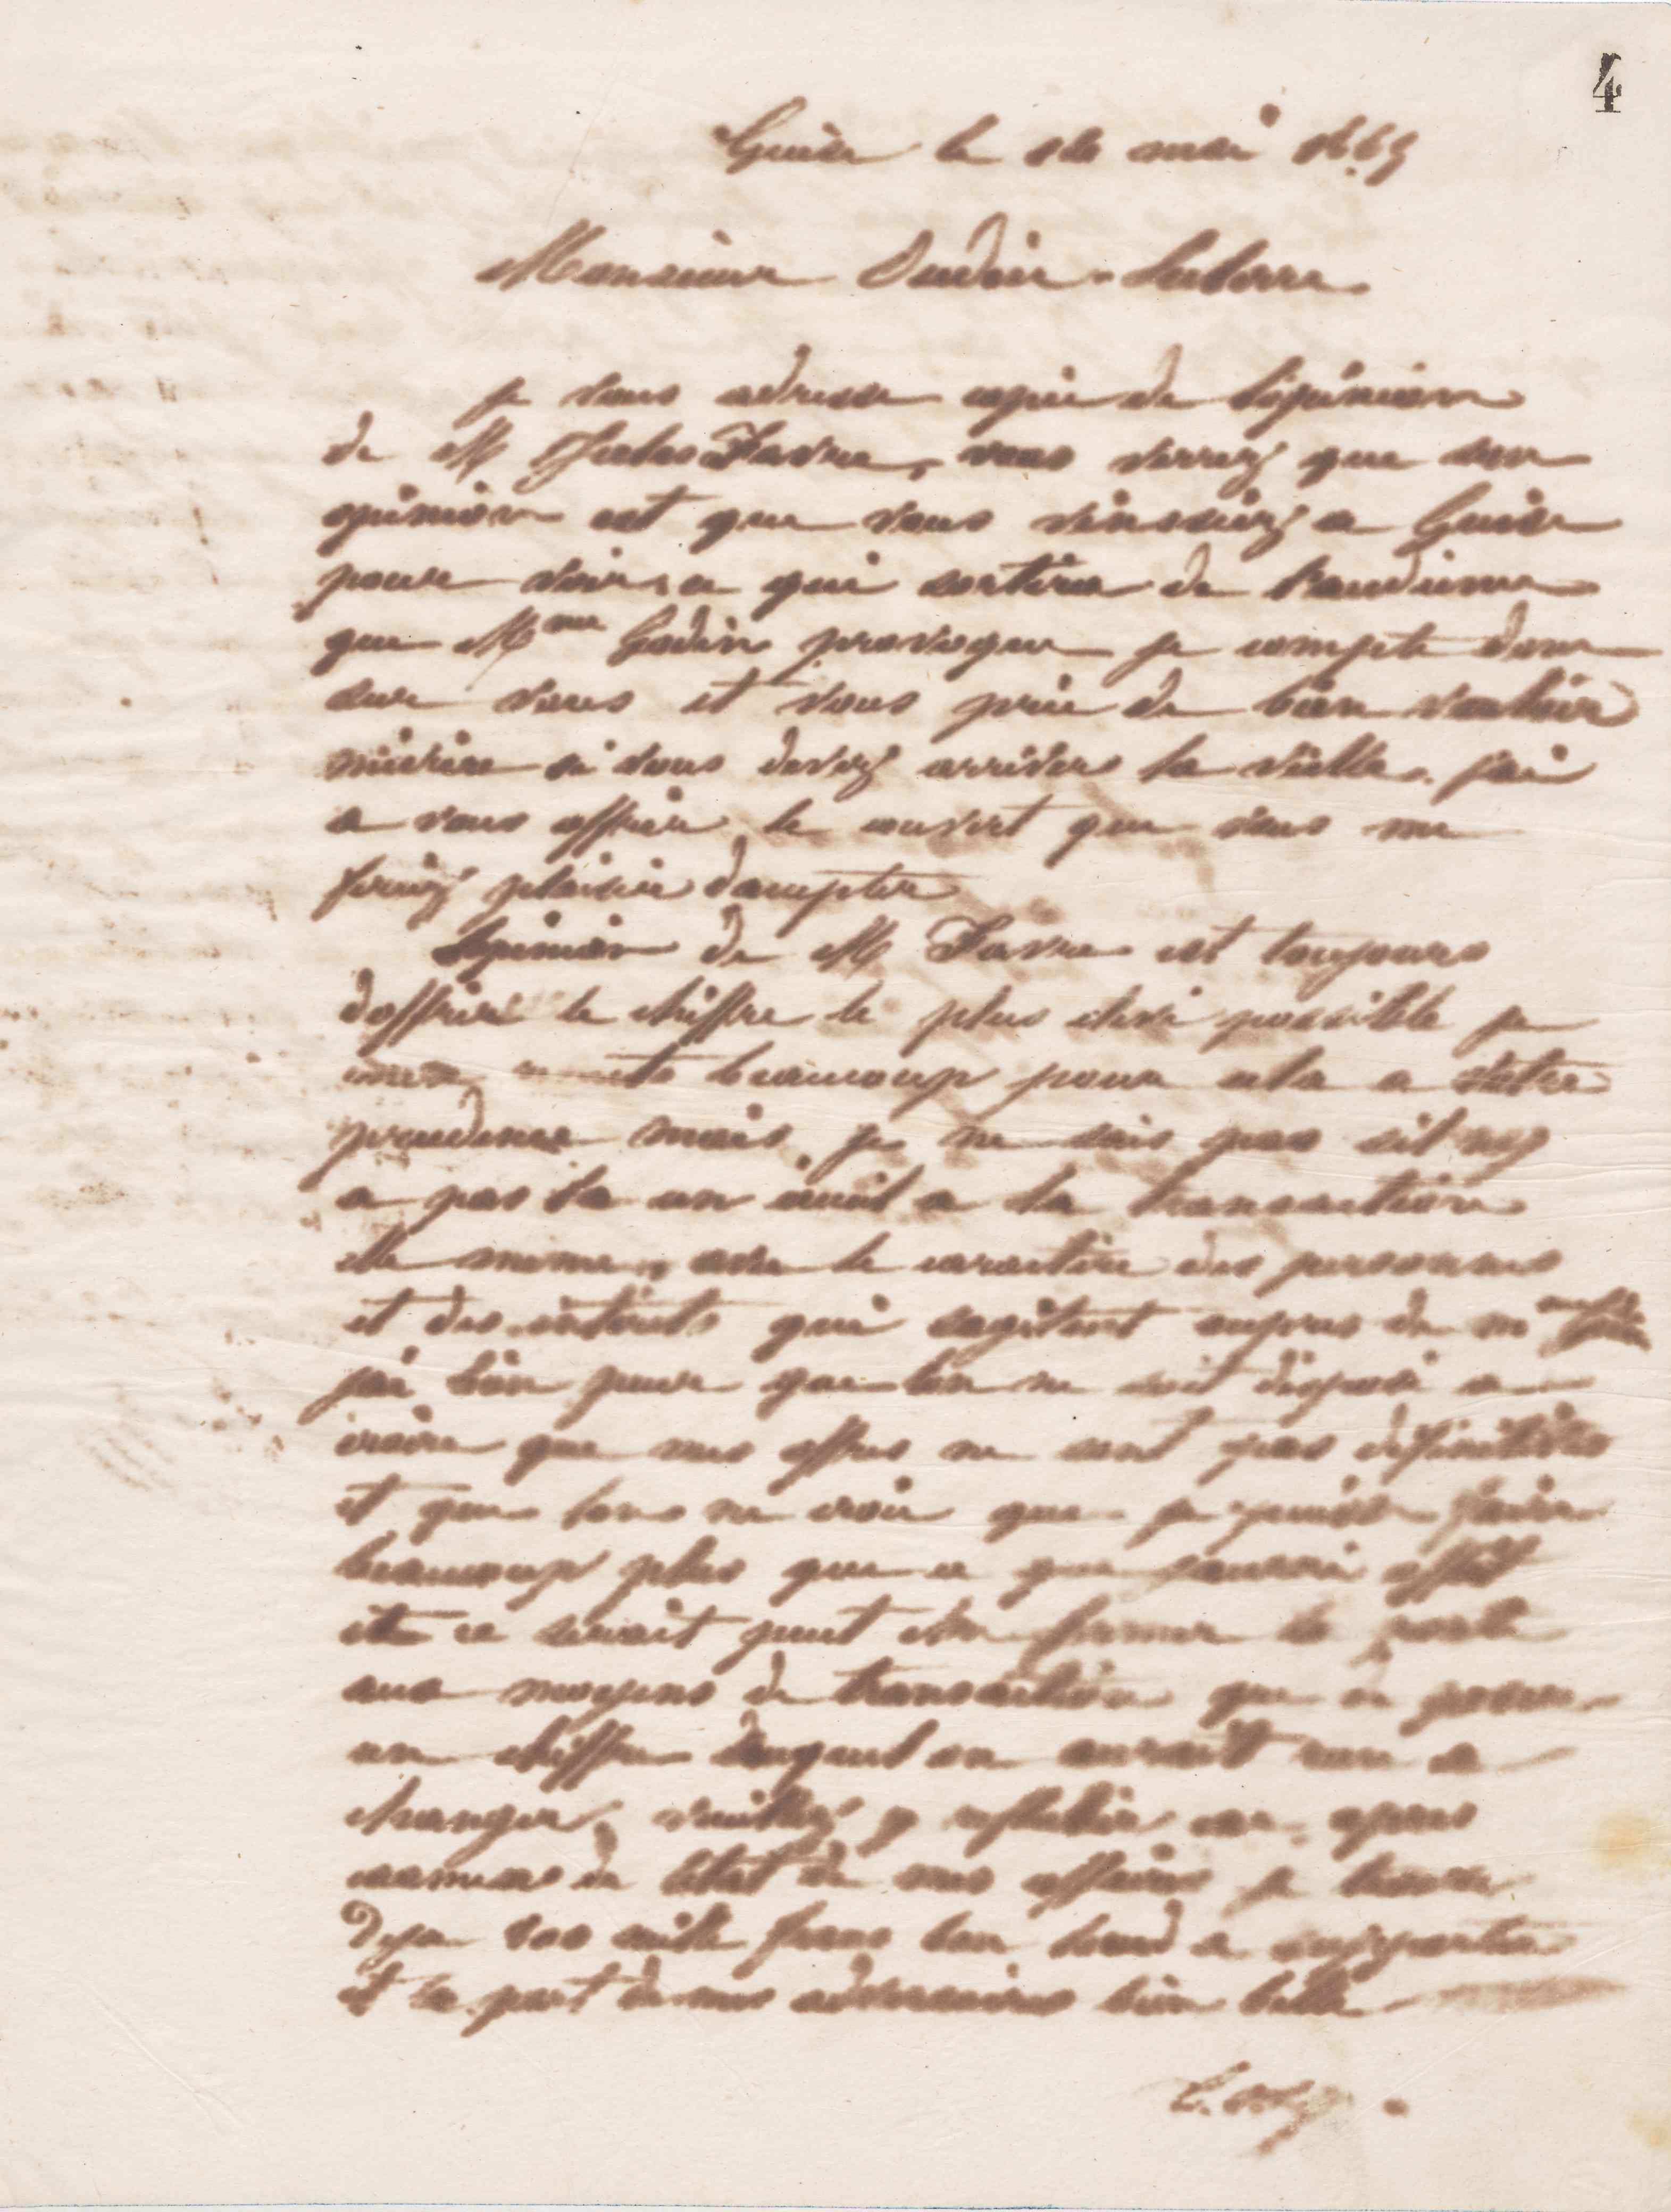 4
Guise le 16 mai 1865
Monsieur Oudin-Leclerc
je vous adresse copie de lopinion
de M Jules Favre, vous verrez que son
opinion est que vous vinssiez a Guise
pour voir ce qui sortira de laudience
que Mme Godin provoque je compte donc
sur vous et vous prie de bien vouloir
mecrire si vous devez arriver la veille. jai
a vous offrir le couvert que vous me
feriez plaisir daccepter
Lopinion de M Favre est toujours
doffrir le chiffre le plus elevé possible je
beaucoup pour cela a votre
prudence mais je ne sais pas sil ny
a pas la un écueil a la transaction
elle meme, avec le caractère des personnes
et des intérêts qui sagitent aupres de
jai bien peur que lon ne soit disposé a
croire que mes offres ne sont pas définitives
et que lon ne croie que je puisse faire
beaucoup plus que ce que jaurai offert
et ce serait peut etre fermer la porte
aux moyens de transaction que de poser
un chiffre auquel on aurait rien a
changer, veuillez y reflechir car apres
examen de létat de mes affaires je trouve
Deja 100 mille francs bien lourd a supporter
et la part de mes adversaires bien belle